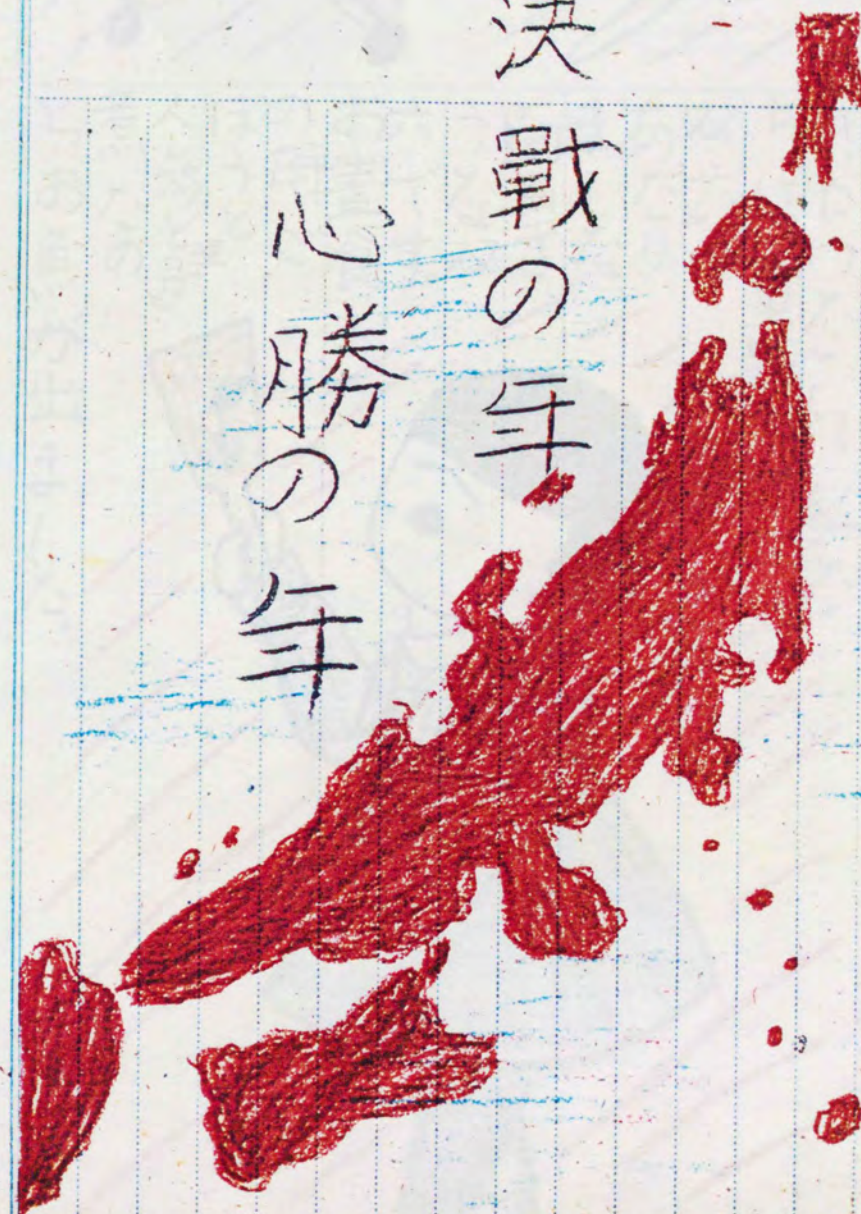 決戰の年
心勝の年